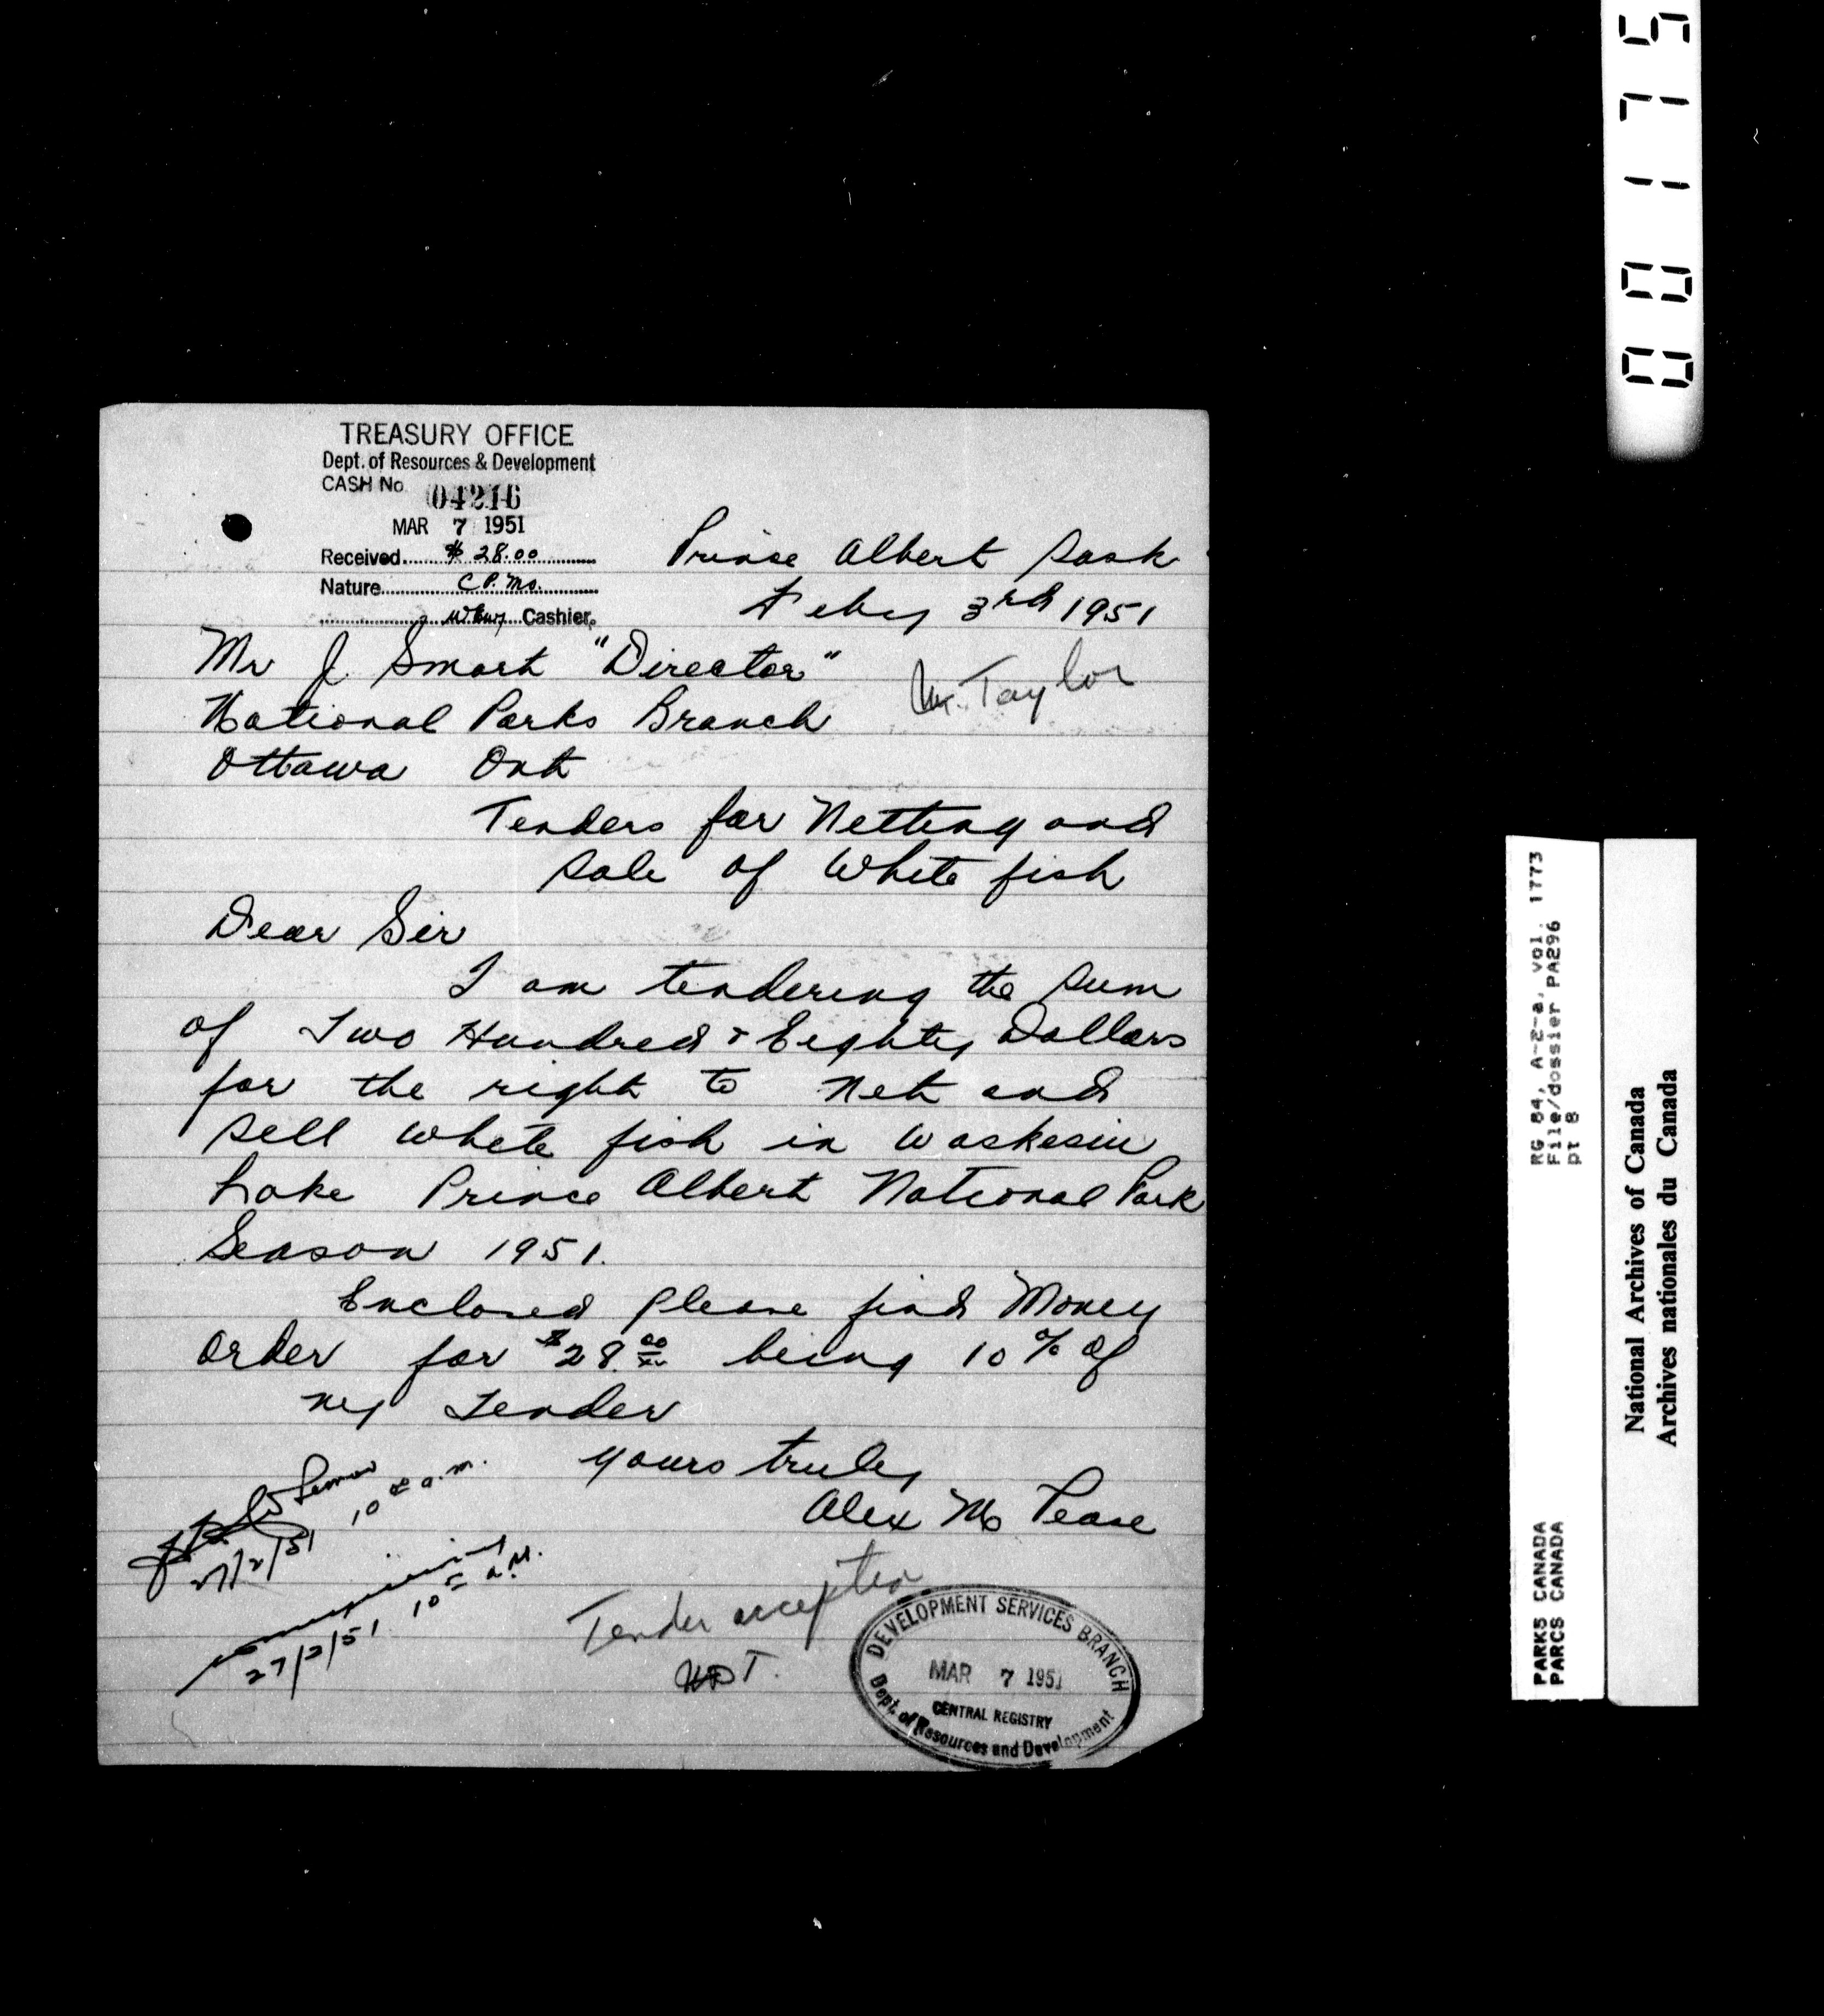 TREASURY OFFICE
Dept. of Resources & Development
CASH No 04216
MAR 7 1951
Received $ 28.00
Nature C.P. Mo.
Cashier.
Prince Albert Sask
Feby 3rd 1951
Mr J. Smart "Director"
Mr. Taylor
National Parks Branch
Ottawa Ont
Tenders for Netting and
Sale of White fish
Dear Sir
I am tendering the sum
of Two Hundred & Eighty Dollars
for the right to net and
sell white fish in Waskesiu
Lake Prince Albert National Park
Season 1951.
Enclosed please find Money
order for $28.00 being 10% of
my Tender
yours truly
Alex Mc Pease
10 a.m.
27/2/51
10 A.M.
27/2/51
Tender accepted
DEVELOPMENT SERVICES BRANCH
MAR 7 1951
CENTRAL REGISTRY
Dept. of Resources and Development
00175
RG 84, A-2-a, vol. 1773
File/dossier PA296
pt 8
PARKS CANADA
PARCS CANADA
National Archives of Canada
Archives nationales du Canada